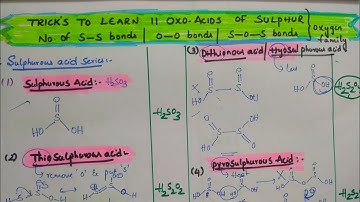 TRICKS TO LEARN 11 OXO-ACIDS OF SULPHUR
No. of S-S bonds | O-O bonds | S-O-S bonds
(oxygen family)
Sulphurous acid series:-
(1) Sulphurous Acid:- H₂SO₃
O
S
HO OH
H₂SO₃
(2) Thiosulphurous acid:-
remove 'O' & put 'S'
S S
HO OH
H₂S₂O₂
(3) Dithionous acid
less
X
O
S S
HO OH
H₂S₂O₄
(4) pyrosulphurous Acid:-
Heat
X
HO OH
H₂S₂O